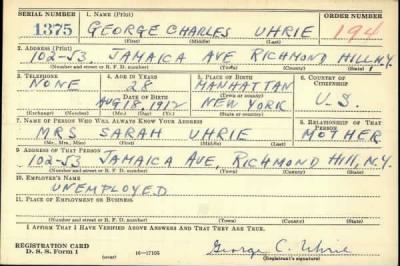 SERIAL NUMBER 1. NAME (Print) ORDER NUMBER
1375 GEORGE CHARLES UHRIE 194
(First) (Middle) (Last)
2. ADDRESS (Print)
102-53 JAMAICA AVE RICHMOND HILL N.Y.
(Number and street or R. F. D. number) (Town) (County) (State)
3. TELEPHONE 4. AGE IN YEARS 5. PLACE OF BIRTH 6. COUNTRY OF CITIZENSHIP
NONE 28 MANHATTAN
DATE OF BIRTH (Town or county)
AUG 18, 1912 NEW YORK U.S.
(Exchange) (Number) (Mo.) (Day) (Yr.) (State or country)
7. NAME OF PERSON WHO WILL ALWAYS KNOW YOUR ADDRESS 8. RELATIONSHIP OF THAT PERSON
MRS SARAH UHRIE MOTHER
(Mr., Mrs., Miss) (First) (Middle) (Last)
9. ADDRESS OF THAT PERSON
102-53 JAMAICA AVE, RICHMOND Hill, N.Y.
(Number and street or R. F. D. number) (Town) (County) (State)
10. EMPLOYER'S NAME
UNEMPLOYED
11. PLACE OF EMPLOYMENT OR BUSINESS
(Number and street or R. F. D. number) (Town) (County) (State)
I AFFIRM THAT I HAVE VERIFIED ABOVE ANSWERS AND THAT THEY ARE TRUE.
REGISTRATION CARD
D. S. S. Form 1 16—17105 George C. Uhrie
(Registrant's signature)